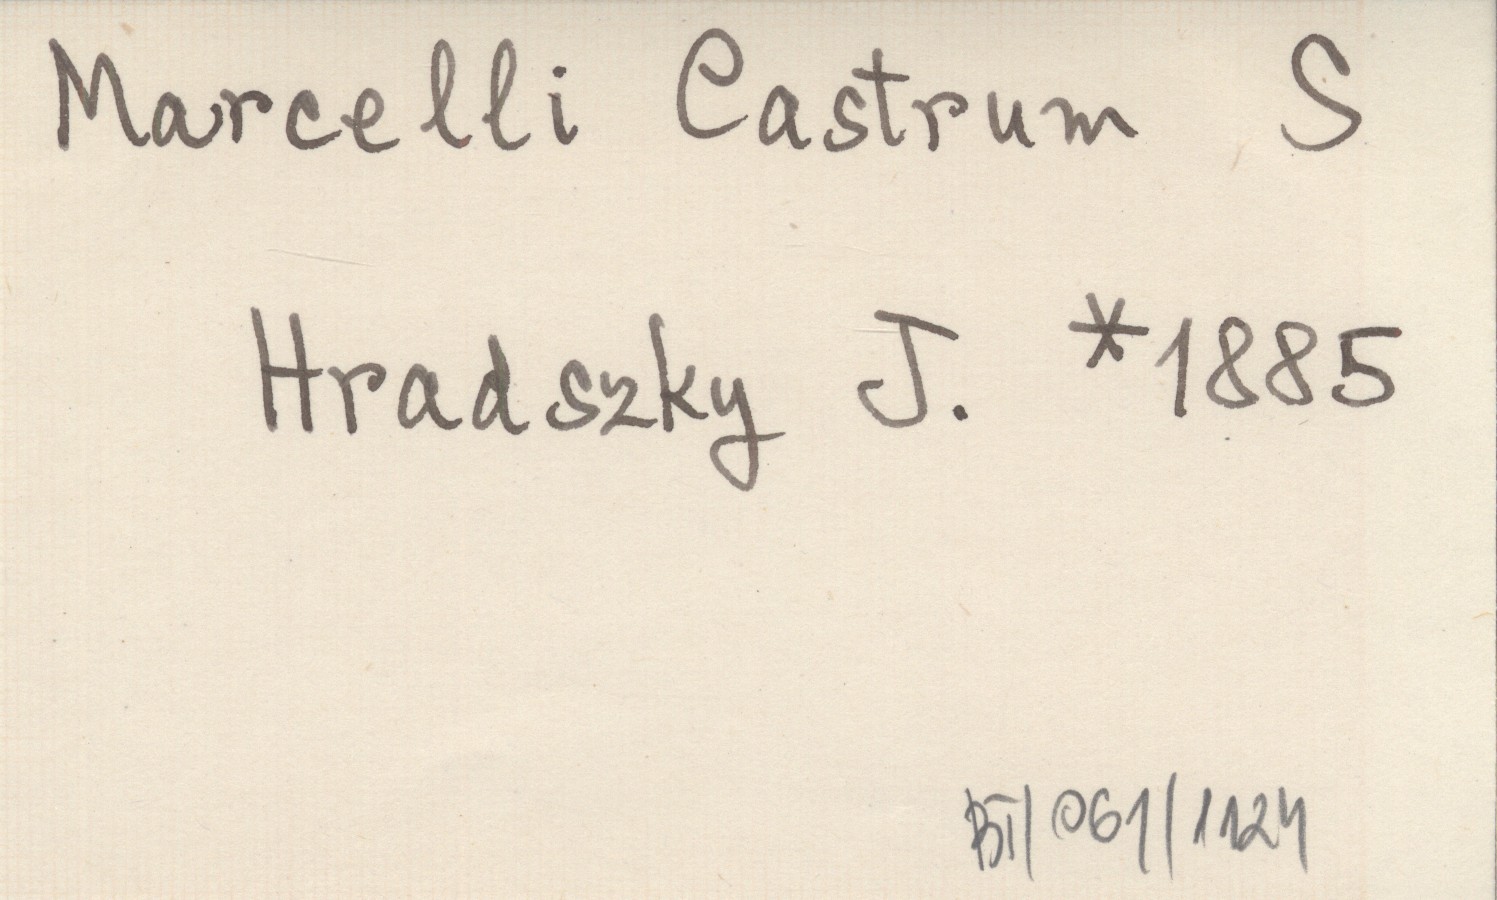 Marcelli Castrum S
Hradszky J. *1885
BI/061/1124